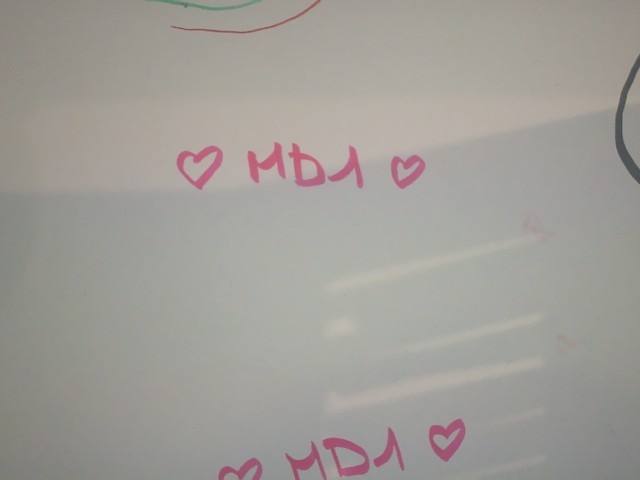 ♡ MD1 ♡
♡ MD1 ♡